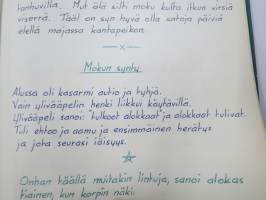 lanhuvilla. Mut älä silti moku kulta itkun virsiä
viserrä. Tääl on syn hyvä olla antaja päiviä
elellä majassa kantapeikon.
Mokun synty
Alussa oli kasarmi autio ja tyhjä.
Vain ylivääpelin henki liikkui käytävillä.
Ylivääpeli sanoi: tulkoot alokkaat ja alokkaat tulivat.
Tuli ehtoo ja aamu ja ensimmäinen herätys
ja joha seurasi iäisyys.
Onhan täällä muitakin lintuja, sanoi alokas
Tiainen, kun korpin näki.